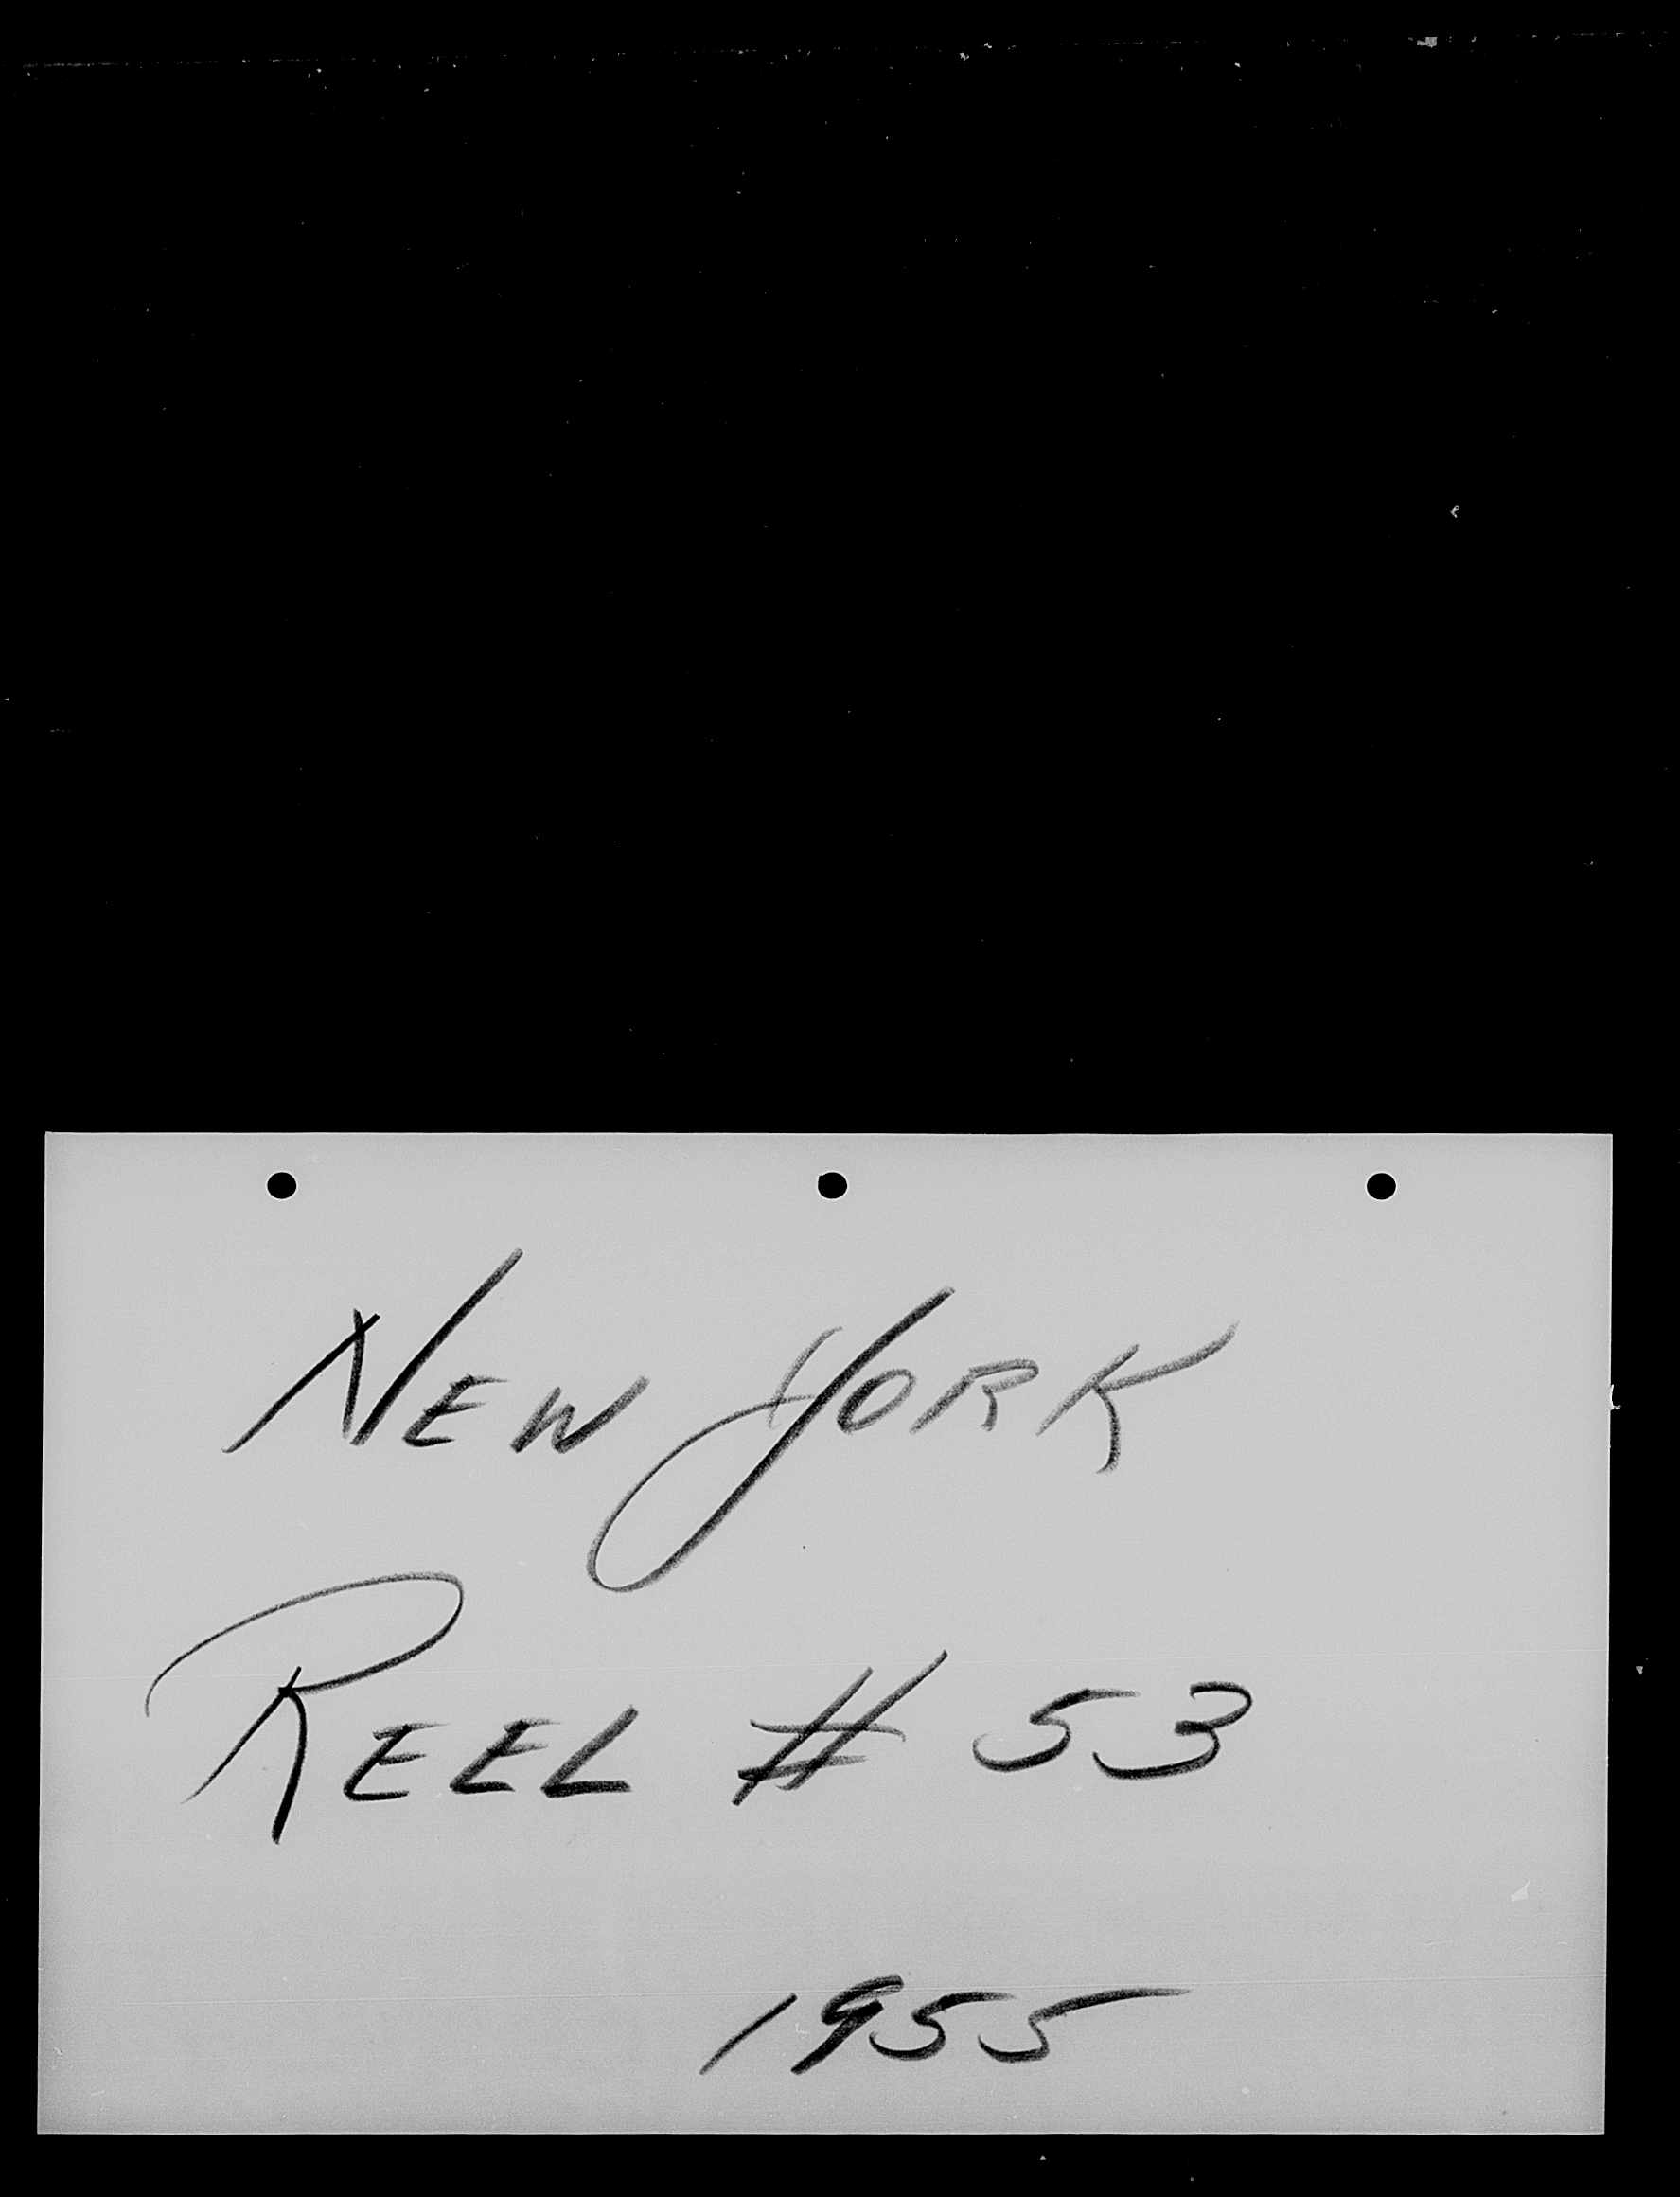 NEW YORK
REEL # 53
1955